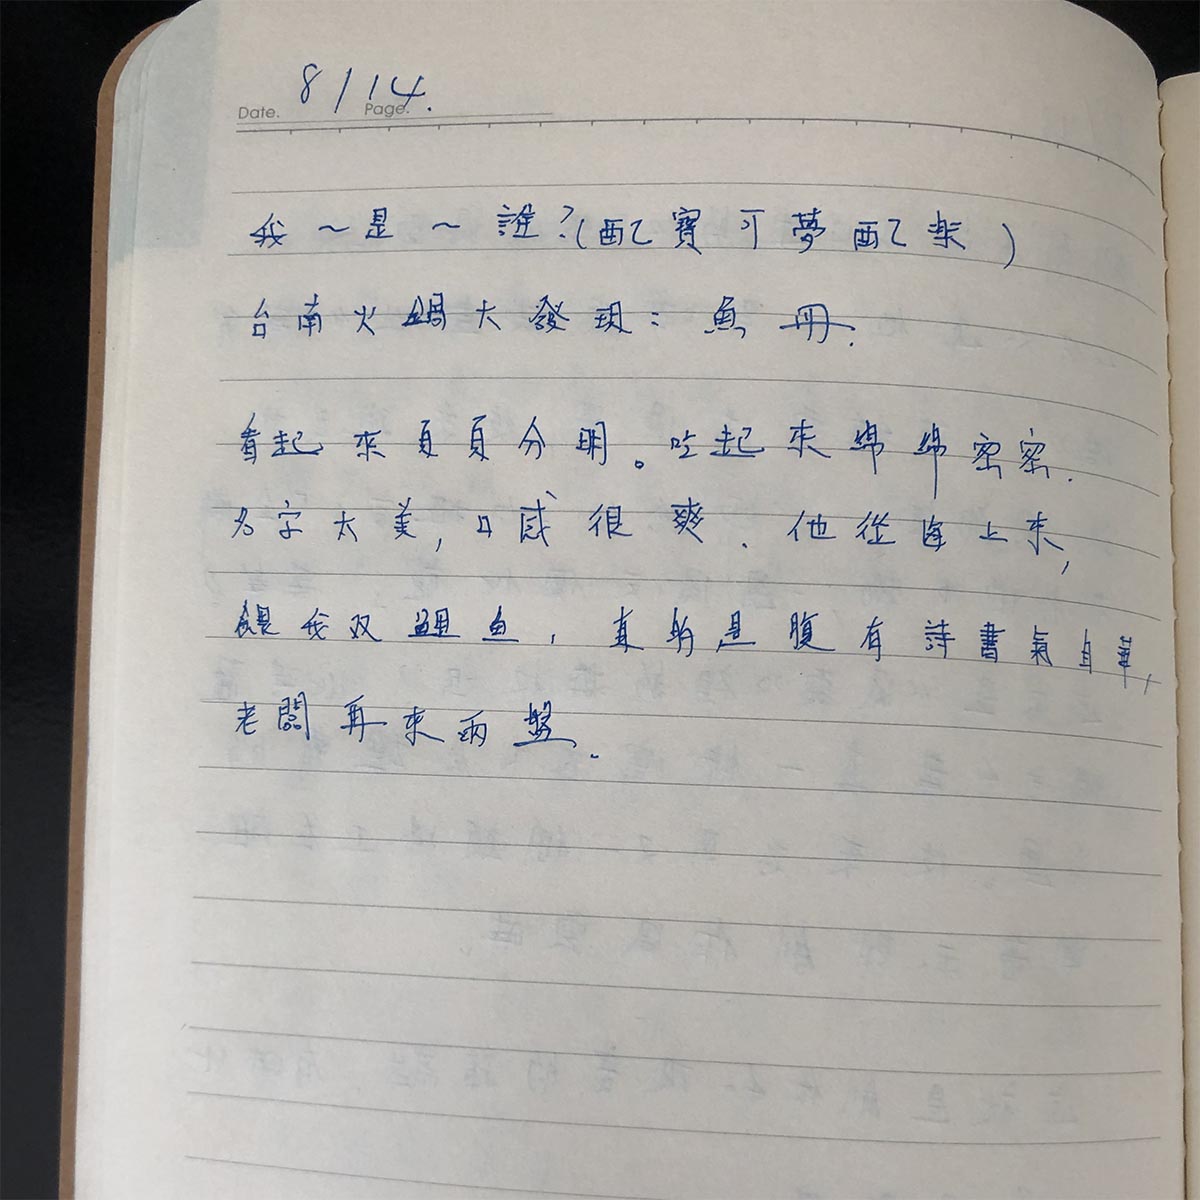 8/14.
Date. Page.
我～是～誰？(配寶可夢配樂)
台南火鍋大發現：魚冊.
看起來頁頁分明。吃起來綿綿密密.
名字太美,口感很爽.他從海上來,
餵我雙鯉魚,真的是腹有詩書氣自華,
老闆再來兩盤.